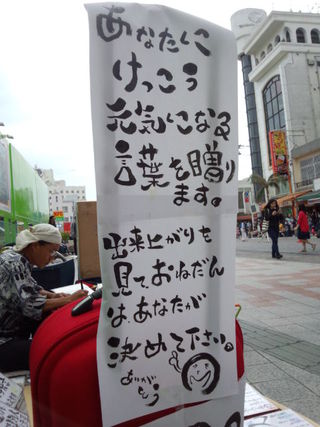 あなたに
けっこう
元気になる
言葉を贈り
ます。
出来上がりも
見て、おねだん
は、あなたが
決めて下さい。
ありがとう